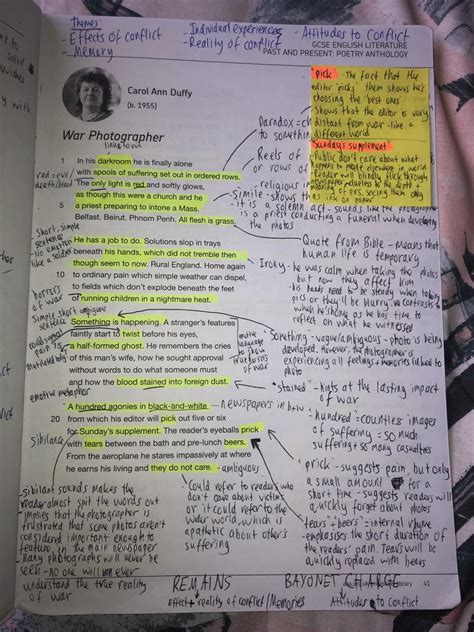 themes
- Effects of conflict
- Memory
- Individual experiences
- Reality of conflict
- Attitudes to Conflict
GCSE ENGLISH LITERATURE
PAST AND PRESENT: POETRY ANTHOLOGY
Carol Ann Duffy
(b. 1955)
"Pick" - The fact that the
editor 'picks' them shows he's
choosing the best ones
Shows that the editor is very
distant from war - like a
different world
"Sunday's supplement"
- Public don't care about what
War Photographer
1 In his darkroom he is finally alone
with spools of suffering set out in ordered rows.
The only light is red and softly glows,
as though this were a church and he
5 a priest preparing to intone a Mass.
Belfast. Beirut. Phnom Penh. All flesh is grass.
He has a job to do. Solutions slop in trays
beneath his hands, which did not tremble then
though seem to now. Rural England. Home again
10 to ordinary pain which simple weather can dispel,
to fields which don't explode beneath the feet
of running children in a nightmare heat.
Something is happening. A stranger's features
faintly start to twist before his eyes,
15 a half-formed ghost. He remembers the cries
of this man's wife, how he sought approval
without words to do what someone must
and how the blood stained into foreign dust.
A hundred agonies in black-and-white
20 from which his editor will pick out five or six
for Sunday's supplement. The reader's eyeballs prick
with tears between the bath and pre-lunch beers.
From the aeroplane he stares impassively at where
he earns his living and they do not care.
- ambiguous
Reels of
or rows of
religious
Simile - shows that
it is a solemn act - sounds like the photographer
is a priest conducting a funeral when developing
the photos
Quote from Bible - means that
human life is temporary
Irony - he was calm when taking the photos
but now they affect him
his hands need to be steady when taking
pics or they'll be blurry
reflect on what he witnessed
Something - vague/ambiguous - photo is being
developed. However, the photographer is
experiencing all feelings + memories linked to
photo
"Stained" - hints at the lasting impact
of war
- Newspapers in b+w
hundred = countless images
of suffering - so much
suffering + so many casualties
'prick' - suggests pain, but only
a small amount for a
short time - suggests readers will
quickly forget about photos
"tears + beers" = internal rhyme
- emphasises the short duration of
the readers' pain. Tears will be
quickly replaced with beers
Could refer to readers who
don't care about victims
or it could refer to the
wider world, which is
apathetic about other's
suffering
red = evil
death/blood
Short, simple
sentence
No emotion
like a soldier
horrors
of war
simple short ambiguous
sentence
pain
emotive
language
to show
emotive metaphor
Sibilance
Sibilant sounds makes the
reader almost spit the words out
implies that the photographer is
frustrated that some photos aren't
considered important enough to
feature in the main newspaper
Many photographs will never be
seen - no one will ever
understand the true reality
of war
REMAINS
Effect + reality of conflict / Memories
BAYONET CHARGE
Attitudes to Conflict
41